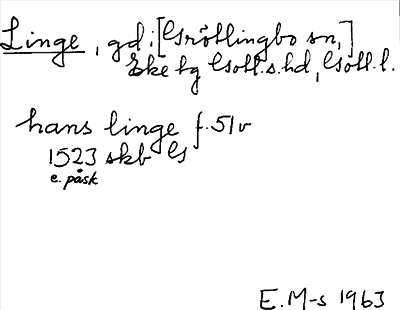 Linge, gd i [Gröttlingbo sn,]
Eke tg Gotl. s. hd, Gotl. l.
hans linge f. 51v
1523 skb G
e. påsk
E. M-s 1963